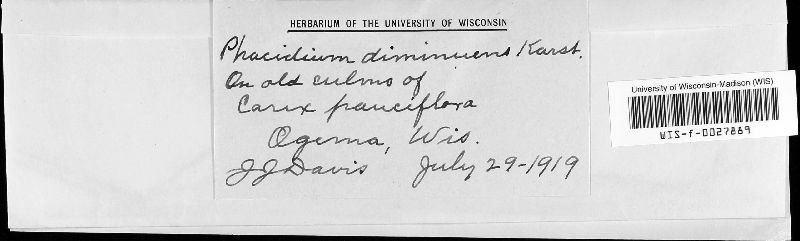 HERBARIUM OF THE UNIVERSITY OF WISCONSIN
Phacidium diminuens Karst.
On old culms of
Carex pauciflora
Ogema, Wis.
JJ Davis July 29-1919
University of Wisconsin-Madison (WIS)
WIS-f-0027889